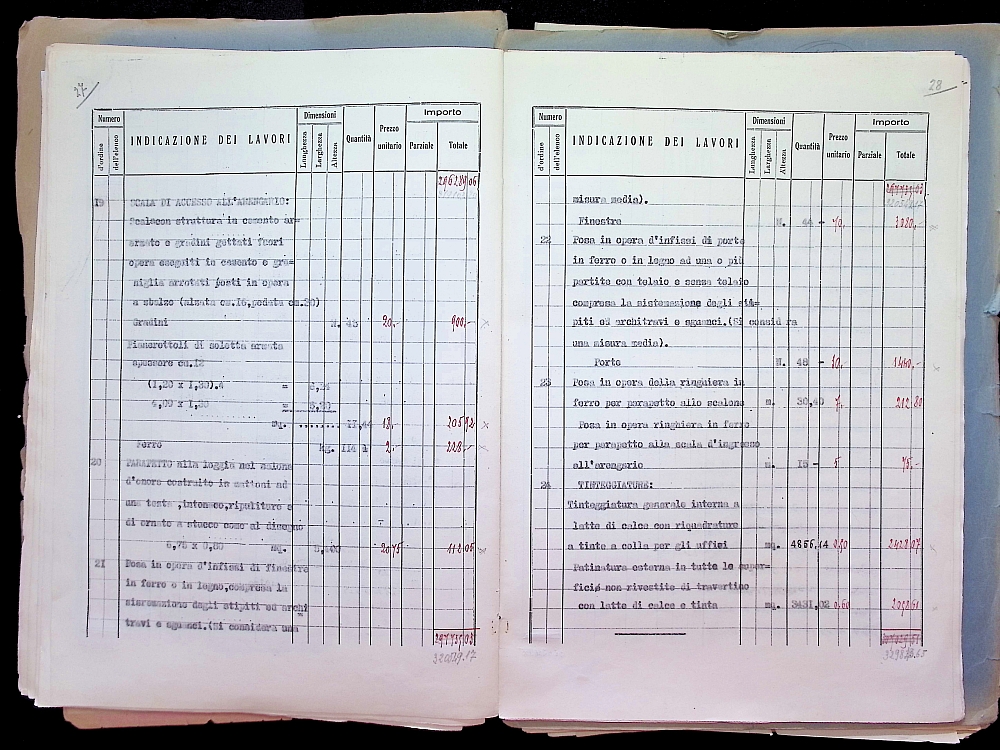 27
Numero Dimensioni Importo
d'ordine dell'elenco INDICAZIONE DEI LAVORI Lunghezza Larghezza Altezza Quantità Prezzo unitario Parziale Totale
19 SCALA DI ACCESSO ALL'ARENGARIO:
Scalacon struttura in cemento ar=
armato e gradini gettati fuori
opera eseguiti in cemento e gra=
niglia arrotati posti in opera
a sbalzo (alzata cm.16,pedata cm.30)
Gradini N. 45 20,- 900,-
Pianerottoli di soletta armata
spessore cm.12
(1,20 x 1,30).4 =
4,00 x 1,30 =
mq. 18,- 205 92
Ferro Kg. 114 2,- 228,-
20 PARAPETTO alla loggia nel salone
d'onore costruito in mattoni ad
una testa ,intonaco,ripulitura e
di ornato a stucco come al disegno
6,75 x 0,80 mq. 5,400 20 75 112 05
21 Posa in opera d'infissi di finestre
in ferro o in legno,compresa la
sistemazione degli stipiti ed archi
travi e sguanci.(Si considera una
28
Numero Dimensioni Importo
d'ordine dell'elenco INDICAZIONE DEI LAVORI Lunghezza Larghezza Altezza Quantità Prezzo unitario Parziale Totale
misura media).
Finestre N. 44 - 70,- 3080,-
22 Posa in opera d'infissi di porte
in ferro o in legno ad una o più
partite con telaio e senza telaio
compresa la sistemazione degli sti=
piti ed architravi e sguanci.(Si consid ra
una misura media).
Porte N. 48 - 30,- 1440,-
23 Posa in opera della ringhiera in
ferro per parapetto allo scalone m. 30,40 7,- 212 80
Posa in opera ringhiera in ferro
per parapetto alla scala d'ingresso
all'arengario m. 15 - 5 75,-
24 TINTEGGIATURE:
Tinteggiatura generale interna a
latte di calce con riquadrature
a tinte a colla per gli uffici mq. 4856,14 0.50 2428 07
Patinatura esterna in tutte le super=
ficie non rivestite di travertino
con latte di calce e tinta mq. 3431,02 0.60 2058 61